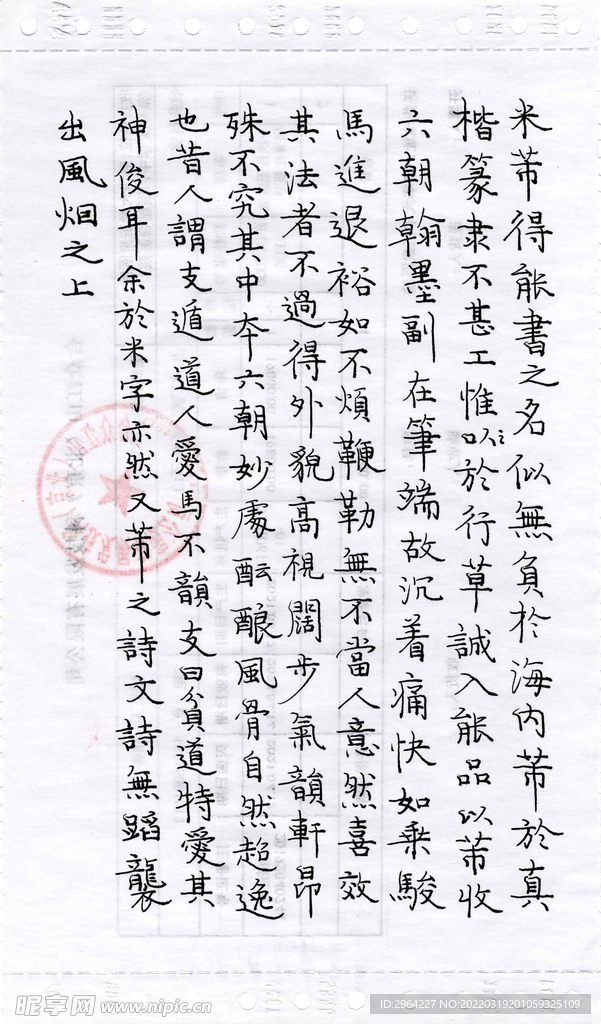 米芾得能書之名似無負於海内芾於真
楷篆隶不甚工惟以於行草誠入能品以芾收
六朝翰墨副在筆端故沉着痛快如乘駿
馬進退裕如不煩鞭勒無不當人意然喜效
其法者不過得外貌高視闊步氣韻軒昂
殊不究其中夲六朝妙處酝酿風骨自然超逸
也昔人謂支遁道人愛馬不韻支曰貧道特愛其
神俊耳余於米字亦然又芾之詩文詩無蹈襲
出風烟之上
昵享网 www.nipic.cn
ID:2964227 NO:20220319201059325109